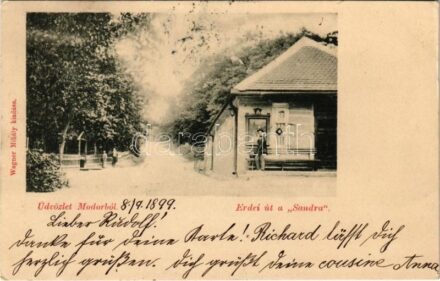 Wagner Mihály kiadása.
Üdvözlet Modorból. 8/9. 1899.
Erdei út a „Sandra".
Lieber Rudolf!
Danke für deine Karte! Richard läßt Dich
herzlich grüßen. Dich grüßt deine cousine Anna
darabanth